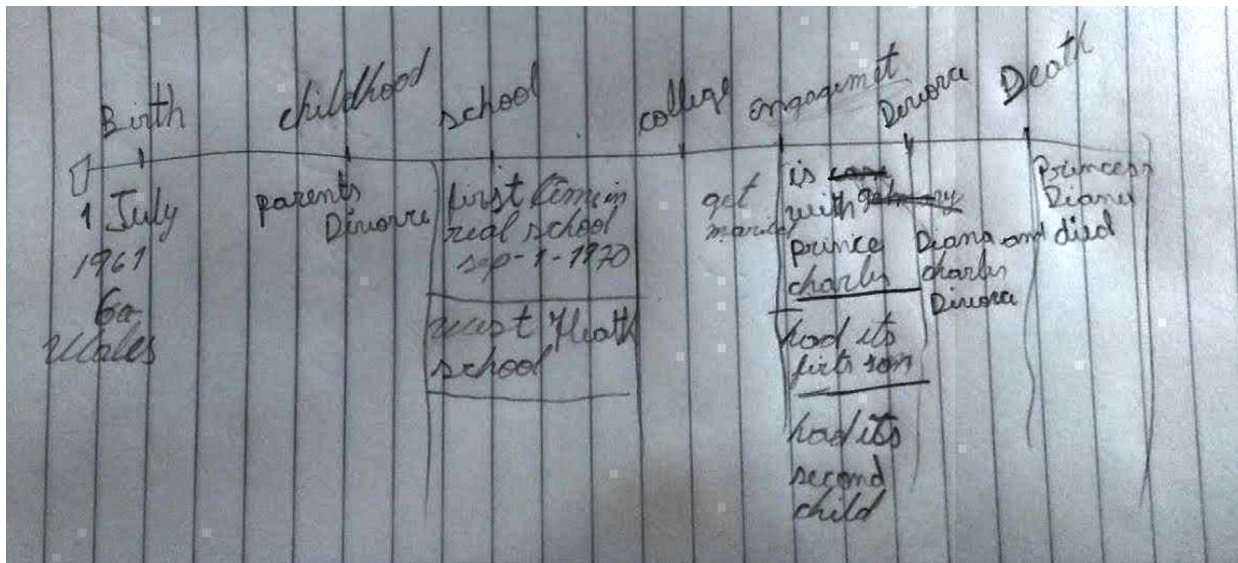 Birth
childhood
school
college
engagemet
Divorce
Death
1 July
1961
Wales
parents
Divorce
first time in
real school
sep-1-1970
west Heath
school
get
maried
is
with
prince
charles
had its
firts son
had its
second
child
Diana and
charles
Divorce
Princess
Diana
died